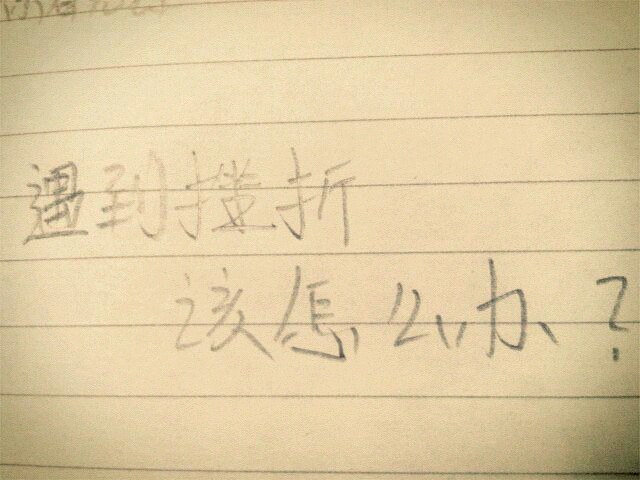 遇到挫折
该怎么办？